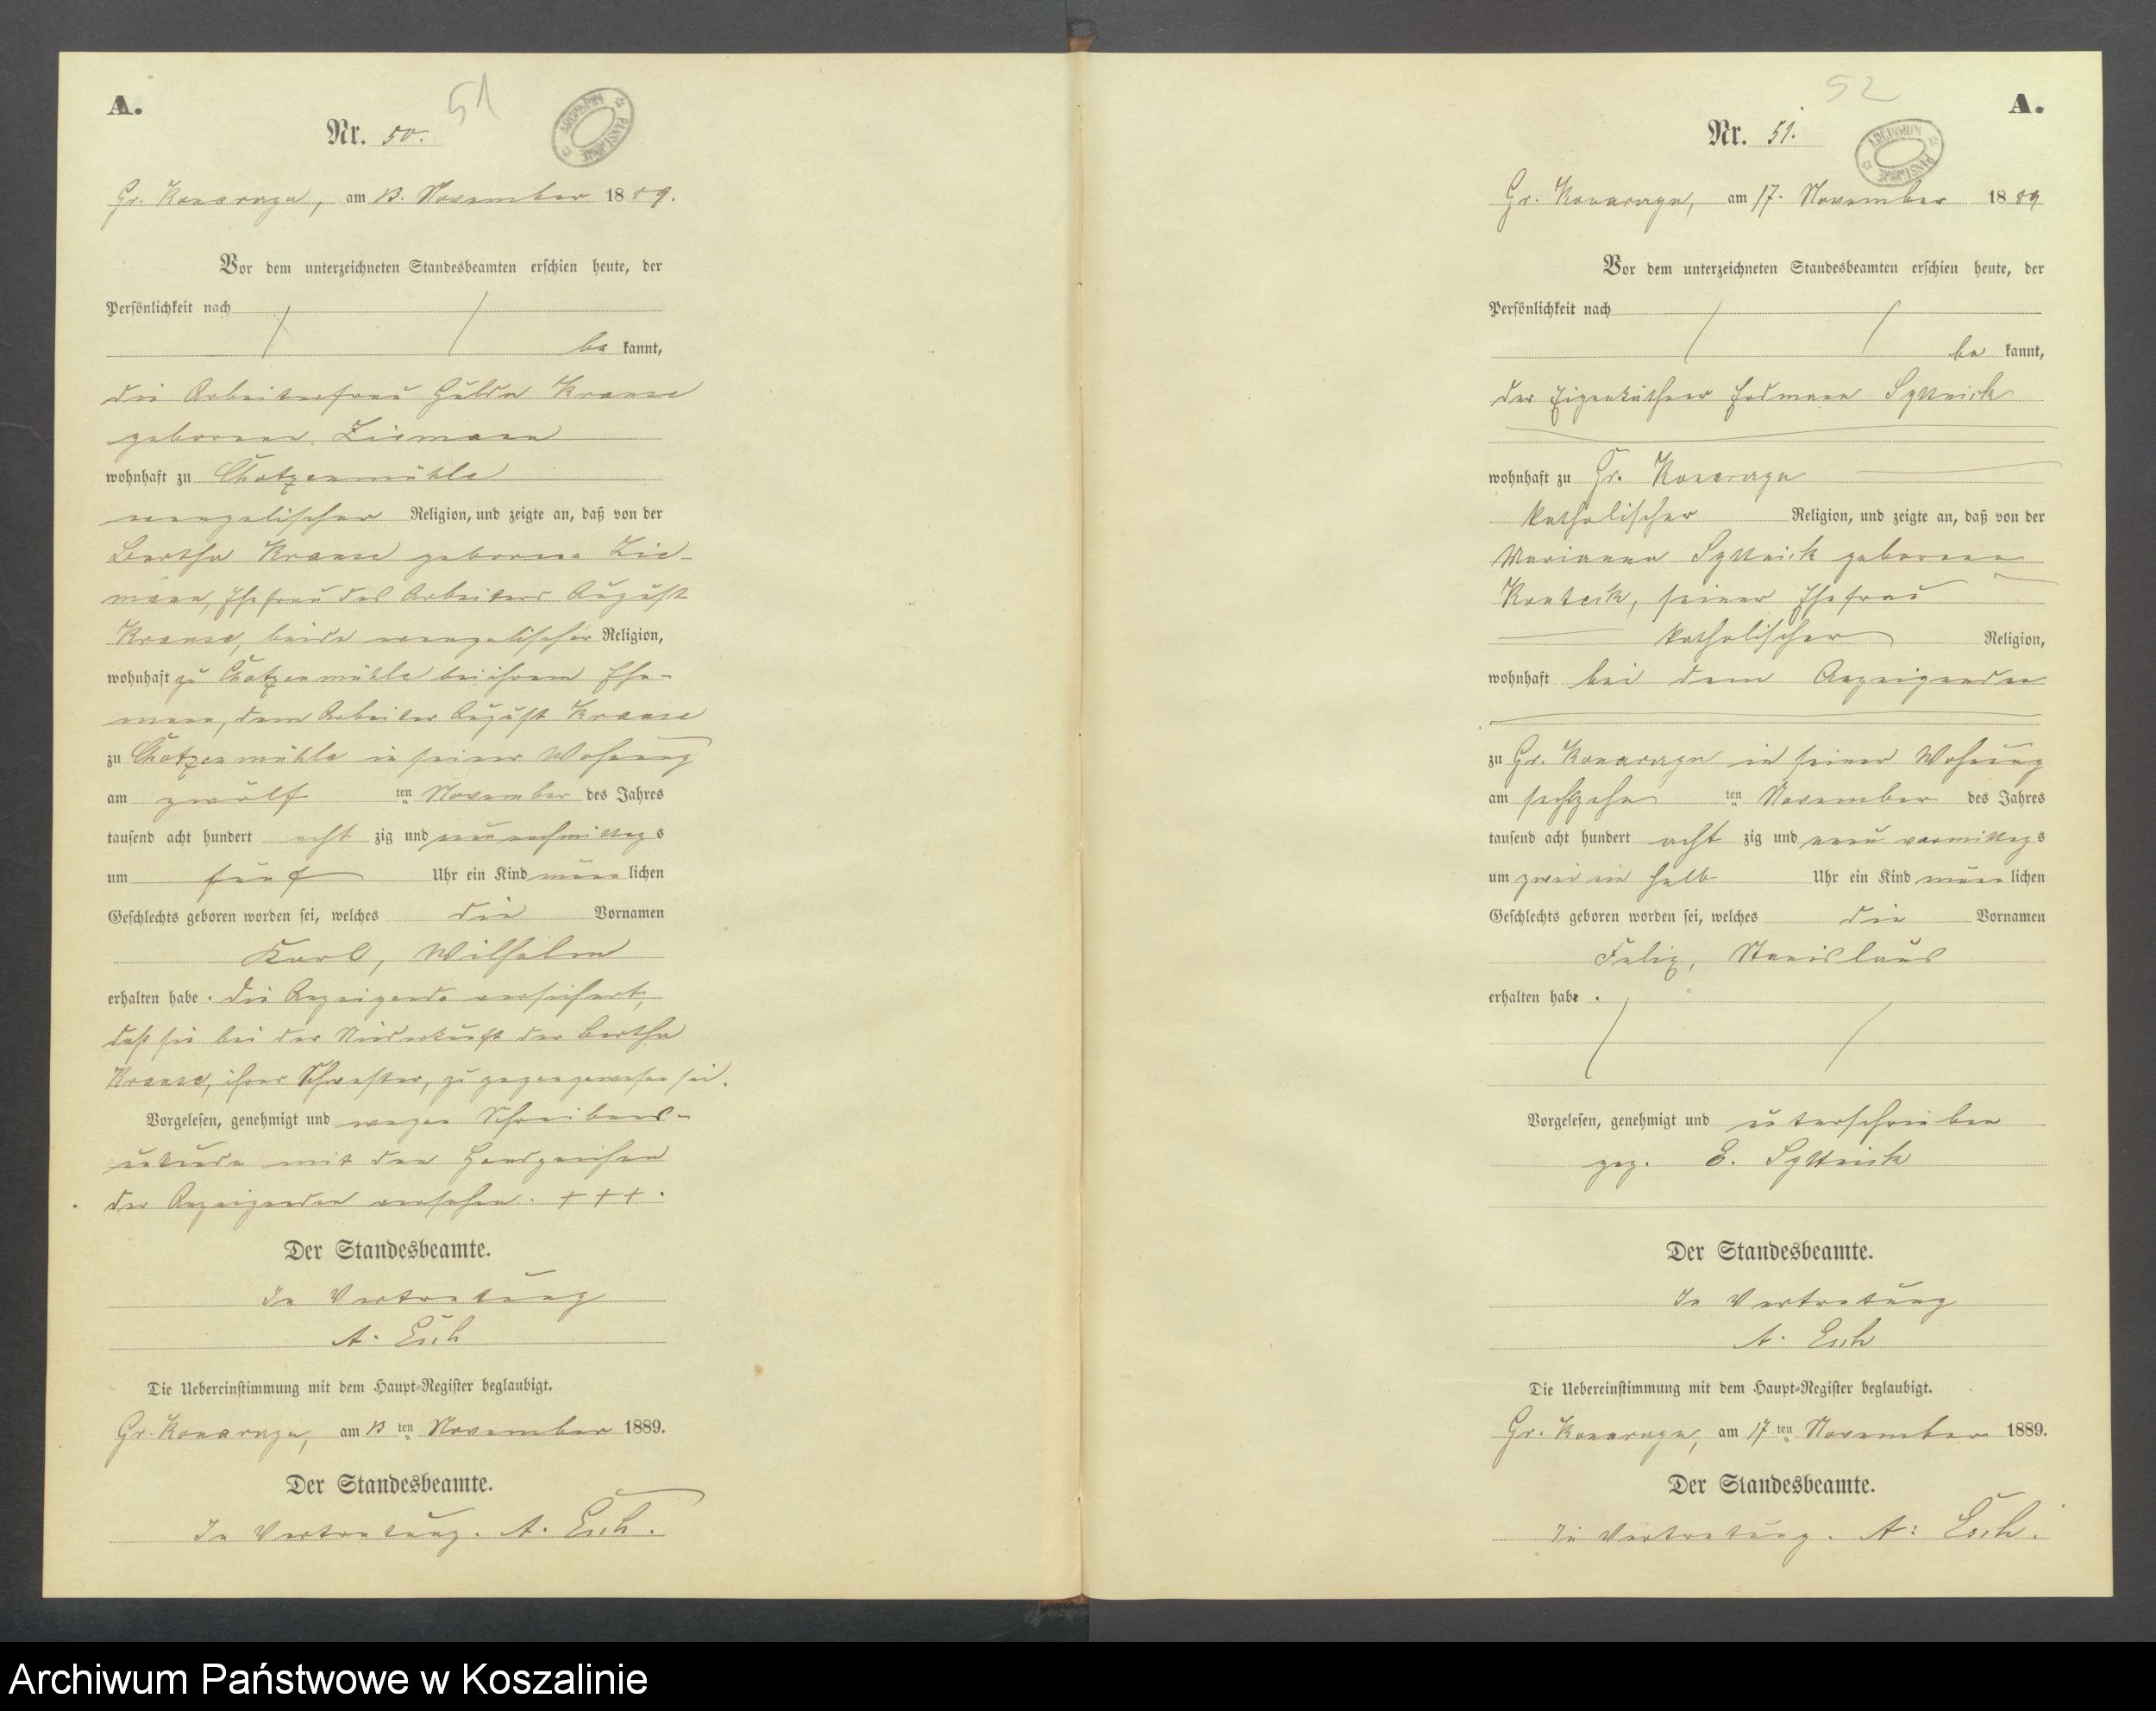 A.
51
Nr. 50.
Gr. Konarzyn, am 13. November 1889.
Vor dem unterzeichneten Standesbeamten erschien heute, der
Persönlichkeit nach
be kannt,
die Arbeiterfrau Hulda Krause
geborene Ziemann
wohnhaft zu Chotzenmühle
evangelischer Religion, und zeigte an, daß von der
Bertha Krause geborene Zie-
mann, Ehefrau des Arbeiters August
Krause, beide evangelischer Religion,
wohnhaft zu Chotzenmühle bei ihrem Ehe-
mann, dem Arbeiter August Krause
zu Chotzenmühle in seiner Wohnung
am zwölf ten November des Jahres
tausend acht hundert acht zig und neun nachmittags
um fünf Uhr ein Kind männlichen
Geschlechts geboren worden sei, welches die Vornamen
Karl, Wilhelm
erhalten habe. Die Anzeigende versichert,
daß sie bei der Niederkunft der Bertha
Krause, ihrer Schwester, zugegen gewesen sei.
Vorgelesen, genehmigt und wegen Schreibens-
unkunde mit den Handzeichen
der Anzeigenden versehen. + + + .
Der Standesbeamte.
In Vertretung
A. Esch
Die Uebereinstimmung mit dem Haupt-Register beglaubigt.
Gr. Konarzyn, am 13 ten November 1889.
Der Standesbeamte.
In Vertretung. A. Esch.
52
A.
Nr. 51.
Gr. Konarzyn, am 17. November 1889
Vor dem unterzeichneten Standesbeamten erschien heute, der
Persönlichkeit nach
be kannt,
der Eigenkäthner Erdmann Syttnick
wohnhaft zu Gr. Konarzyn
katholischer Religion, und zeigte an, daß von der
Marianna Syttnick geborene
seiner Ehefrau
katholischer Religion,
wohnhaft bei dem Anzeigenden
zu Gr. Konarzyn in seiner Wohnung
am sechzehn ten November des Jahres
tausend acht hundert acht zig und neun vormittags
um zwei ein halb Uhr ein Kind männlichen
Geschlechts geboren worden sei, welches die Vornamen
Felix, Stanislaus
erhalten habe.
Vorgelesen, genehmigt und unterschrieben
gez. E. Syttnick
Der Standesbeamte.
In Vertretung
A. Esch
Die Uebereinstimmung mit dem Haupt-Register beglaubigt.
Gr. Konarzyn, am 17 ten November 1889.
Der Standesbeamte.
In Vertretung. A. Esch.
Archiwum Państwowe w Koszalinie